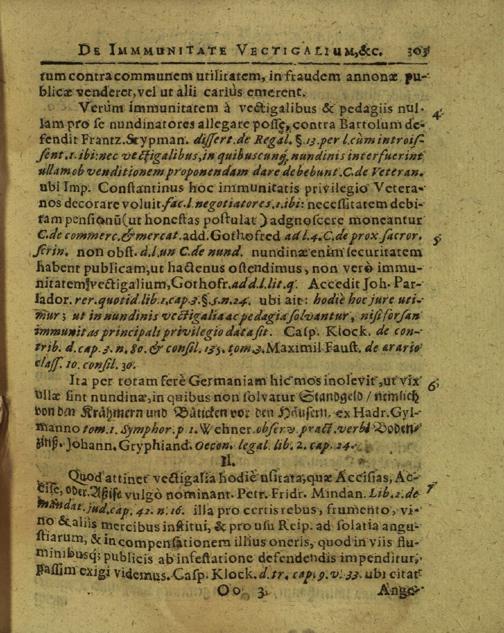 DE IMMMUNITATE VECTIGALIUM, &c. 303
tum contra communem utilitatem, in fraudem annonæ pu-
blicæ venderet, vel ut alii cariùs emerent.
Verùm immunitatem à vectigalibus & pedagiis nul-
lam pro se nundinatores allegare posse, contra Bartolum de-
fendit Frantz. Stypman. dissert. de Regal. §. 13. per l. cùm introis-
sent. 1. ibi: nec vectigalibus, in quibuscunq; nundinis interfuerint
ullam ob venditionem proponendam dare debebunt. C. de Veteran.
ubi Imp. Constantinus hoc immunitatis privilegio Vetera-
nos decorare voluit. fac. l. negotiatores. 1. ibi: necessitatem debi-
tam pensionũ (ut honestas postulat) adgnoscere moneantur
C. de commerc. & mercat. add. Gothofred ad l. 4. C. de prox sacror.
scrin. non obst. d. l. un C. de nund. nundinæ enim securitatem
habent publicam, ut hactenus ostendimus, non verò immu-
nitatem vectigalium, Gothofr. ad d. l. lit. q. Accedit Joh. Par-
lador. rer. quotid lib. 1. cap. 3. §. 5. n. 24. ubi ait: hodiè hoc jure uti-
mur; ut in nundinis vectigalia ac pedagia solvantur, nisi forsan
immunitas principali privilegio data sit. Casp. Klock. de con-
trib. d. cap. 3. n. 80. & consil. 135. tom. 3. Maximil Faust. de ærario
class. 10. consil. 30.
Ita per totam ferè Germaniam hic mos inolevit, ut vix
ullæ sint nundinæ, in quibus non solvatur Standgeld / nemlich
von den Krähmern und Bäticken vor den Häusern. ex Hadr. Gyl-
manno tom. 1. Symphor. p 1. Wehner. observ. pract. verb. Boden-
zinß. Johann. Gryphiand. Oecon. legal. lib. 2. cap. 24.
II.
Quod attinet vectigalia hodiè usitata, quæ Accisias, Ac-
cise, oder Assise vulgò nominant. Petr. Fridr. Mindan. Lib. 2. de
mandat. jud. cap. 42. n. 16. illa pro certis rebus, frumento, vi-
no & aliis mercibus institui, & pro usu Reip. ad solatia angu-
stiarum, & in compensationem illius oneris, quod in viis flu-
minibusq; publicis ab infestatione defendendis impenditur,
passim exigi videmus. Casp. Klock. d. tr. cap. 9. v. 33. ubi citat
Oo 3 Ange-
4.
5.
6.
7